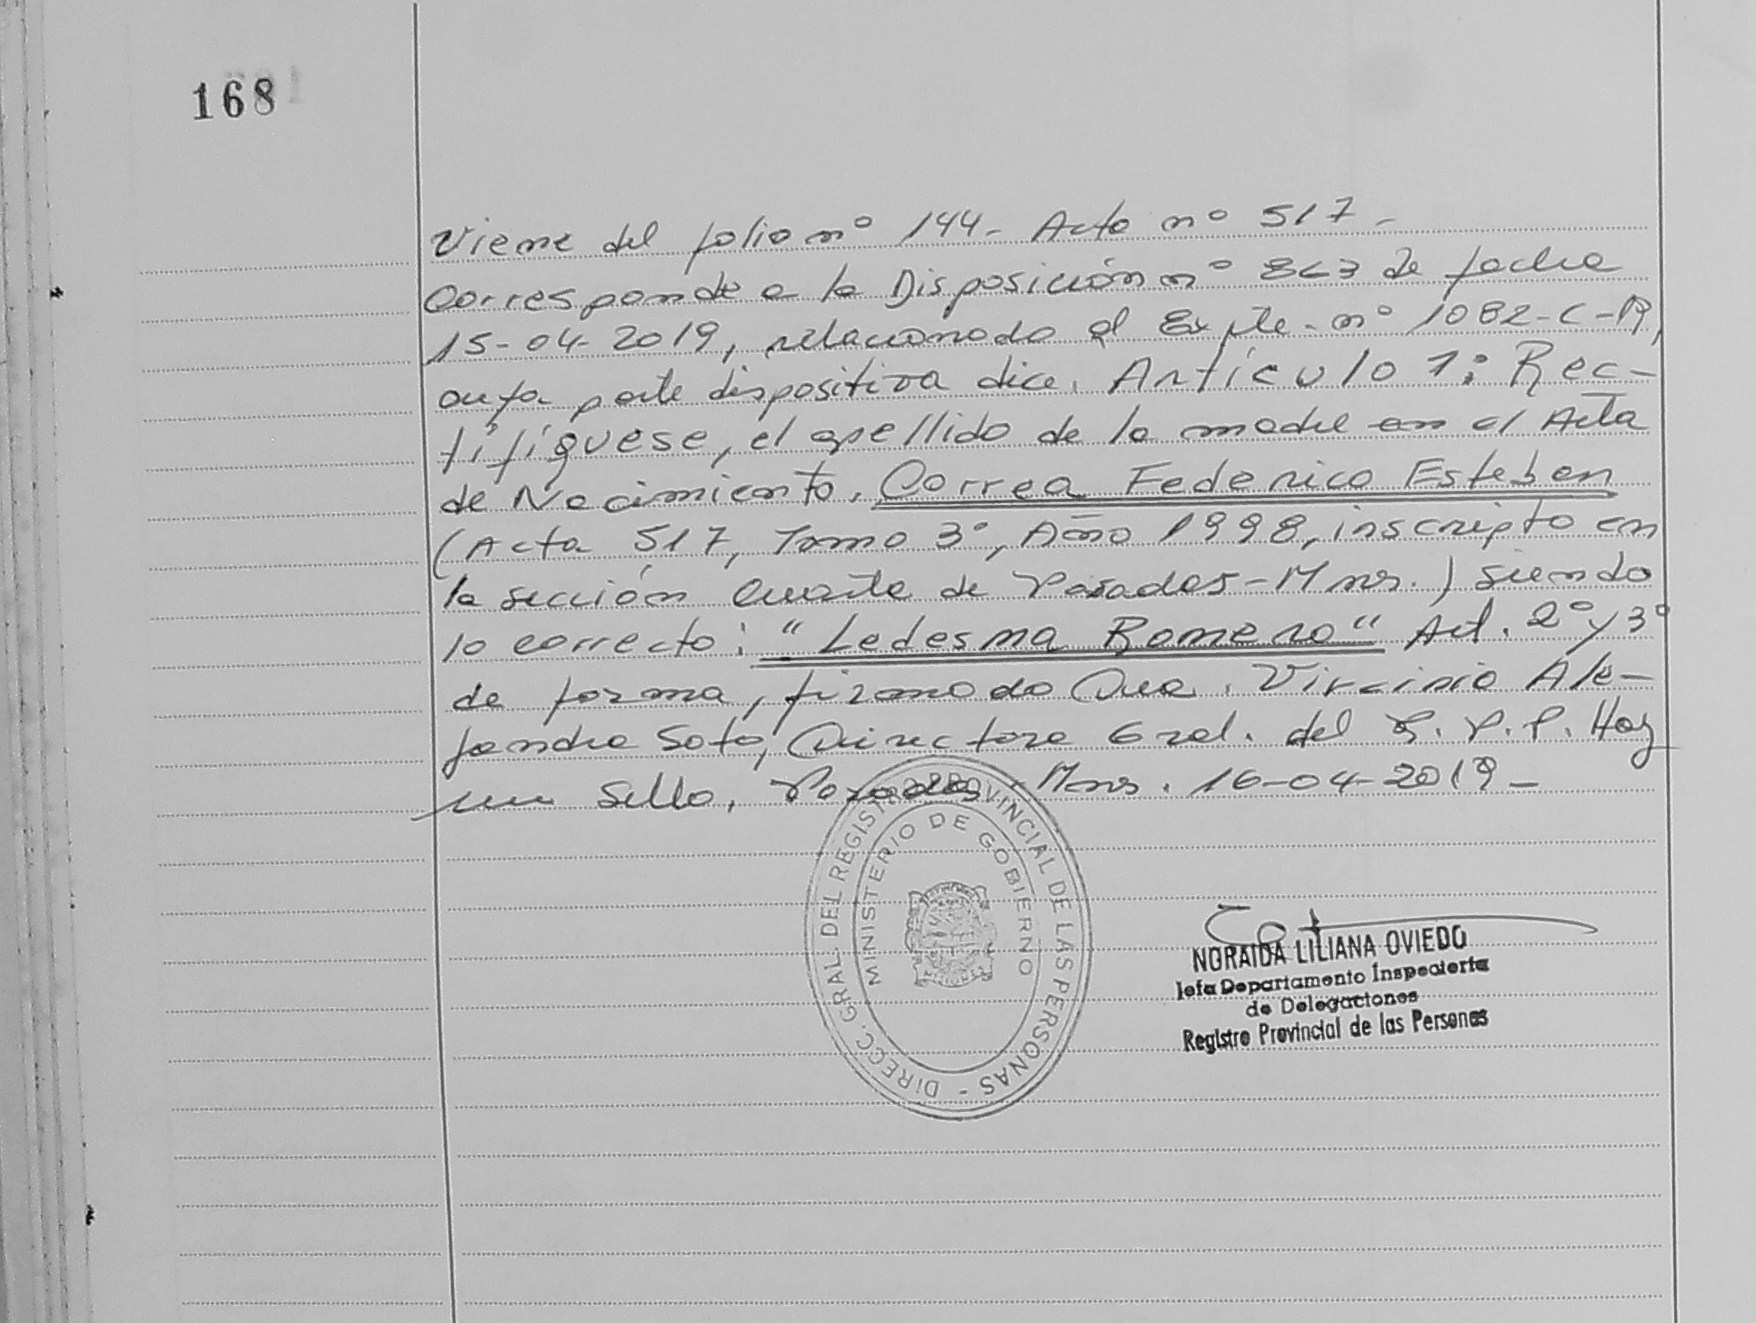 168
Viene del folio nº 144- Acta nº 517-
Corresponde a la Disposición nº 863 de fecha
15-04-2019, relacionado al Expte. nº 1082-C-19,
cuya parte dispositiva dice. Artículo 1: Rec-
tifíquese, el apellido de la madre en el Acta
de Nacimiento. Correa Federico Esteban
(Acta 517, Tomo 3º, Año 1998, inscripto en
la sección Cuarta de Posadas-Mnes.) siendo
lo correcto: "Ledesma Romero" Art. 2º y 3º
de forma, firmado Dra. Virginia Ale-
jandra Soto, Directora Gral. del R.P.P. Hay
un sello, Posadas, Mnes. 16-04-2019-
DIRECC. GRAL. DEL REGISTRO PROVINCIAL DE LAS PERSONAS -
MINISTERIO DE GOBIERNO
MISIONES
NORAIDA LILIANA OVIEDO
Jefa Departamento Inspectoría
de Delegaciones
Registro Provincial de las Personas